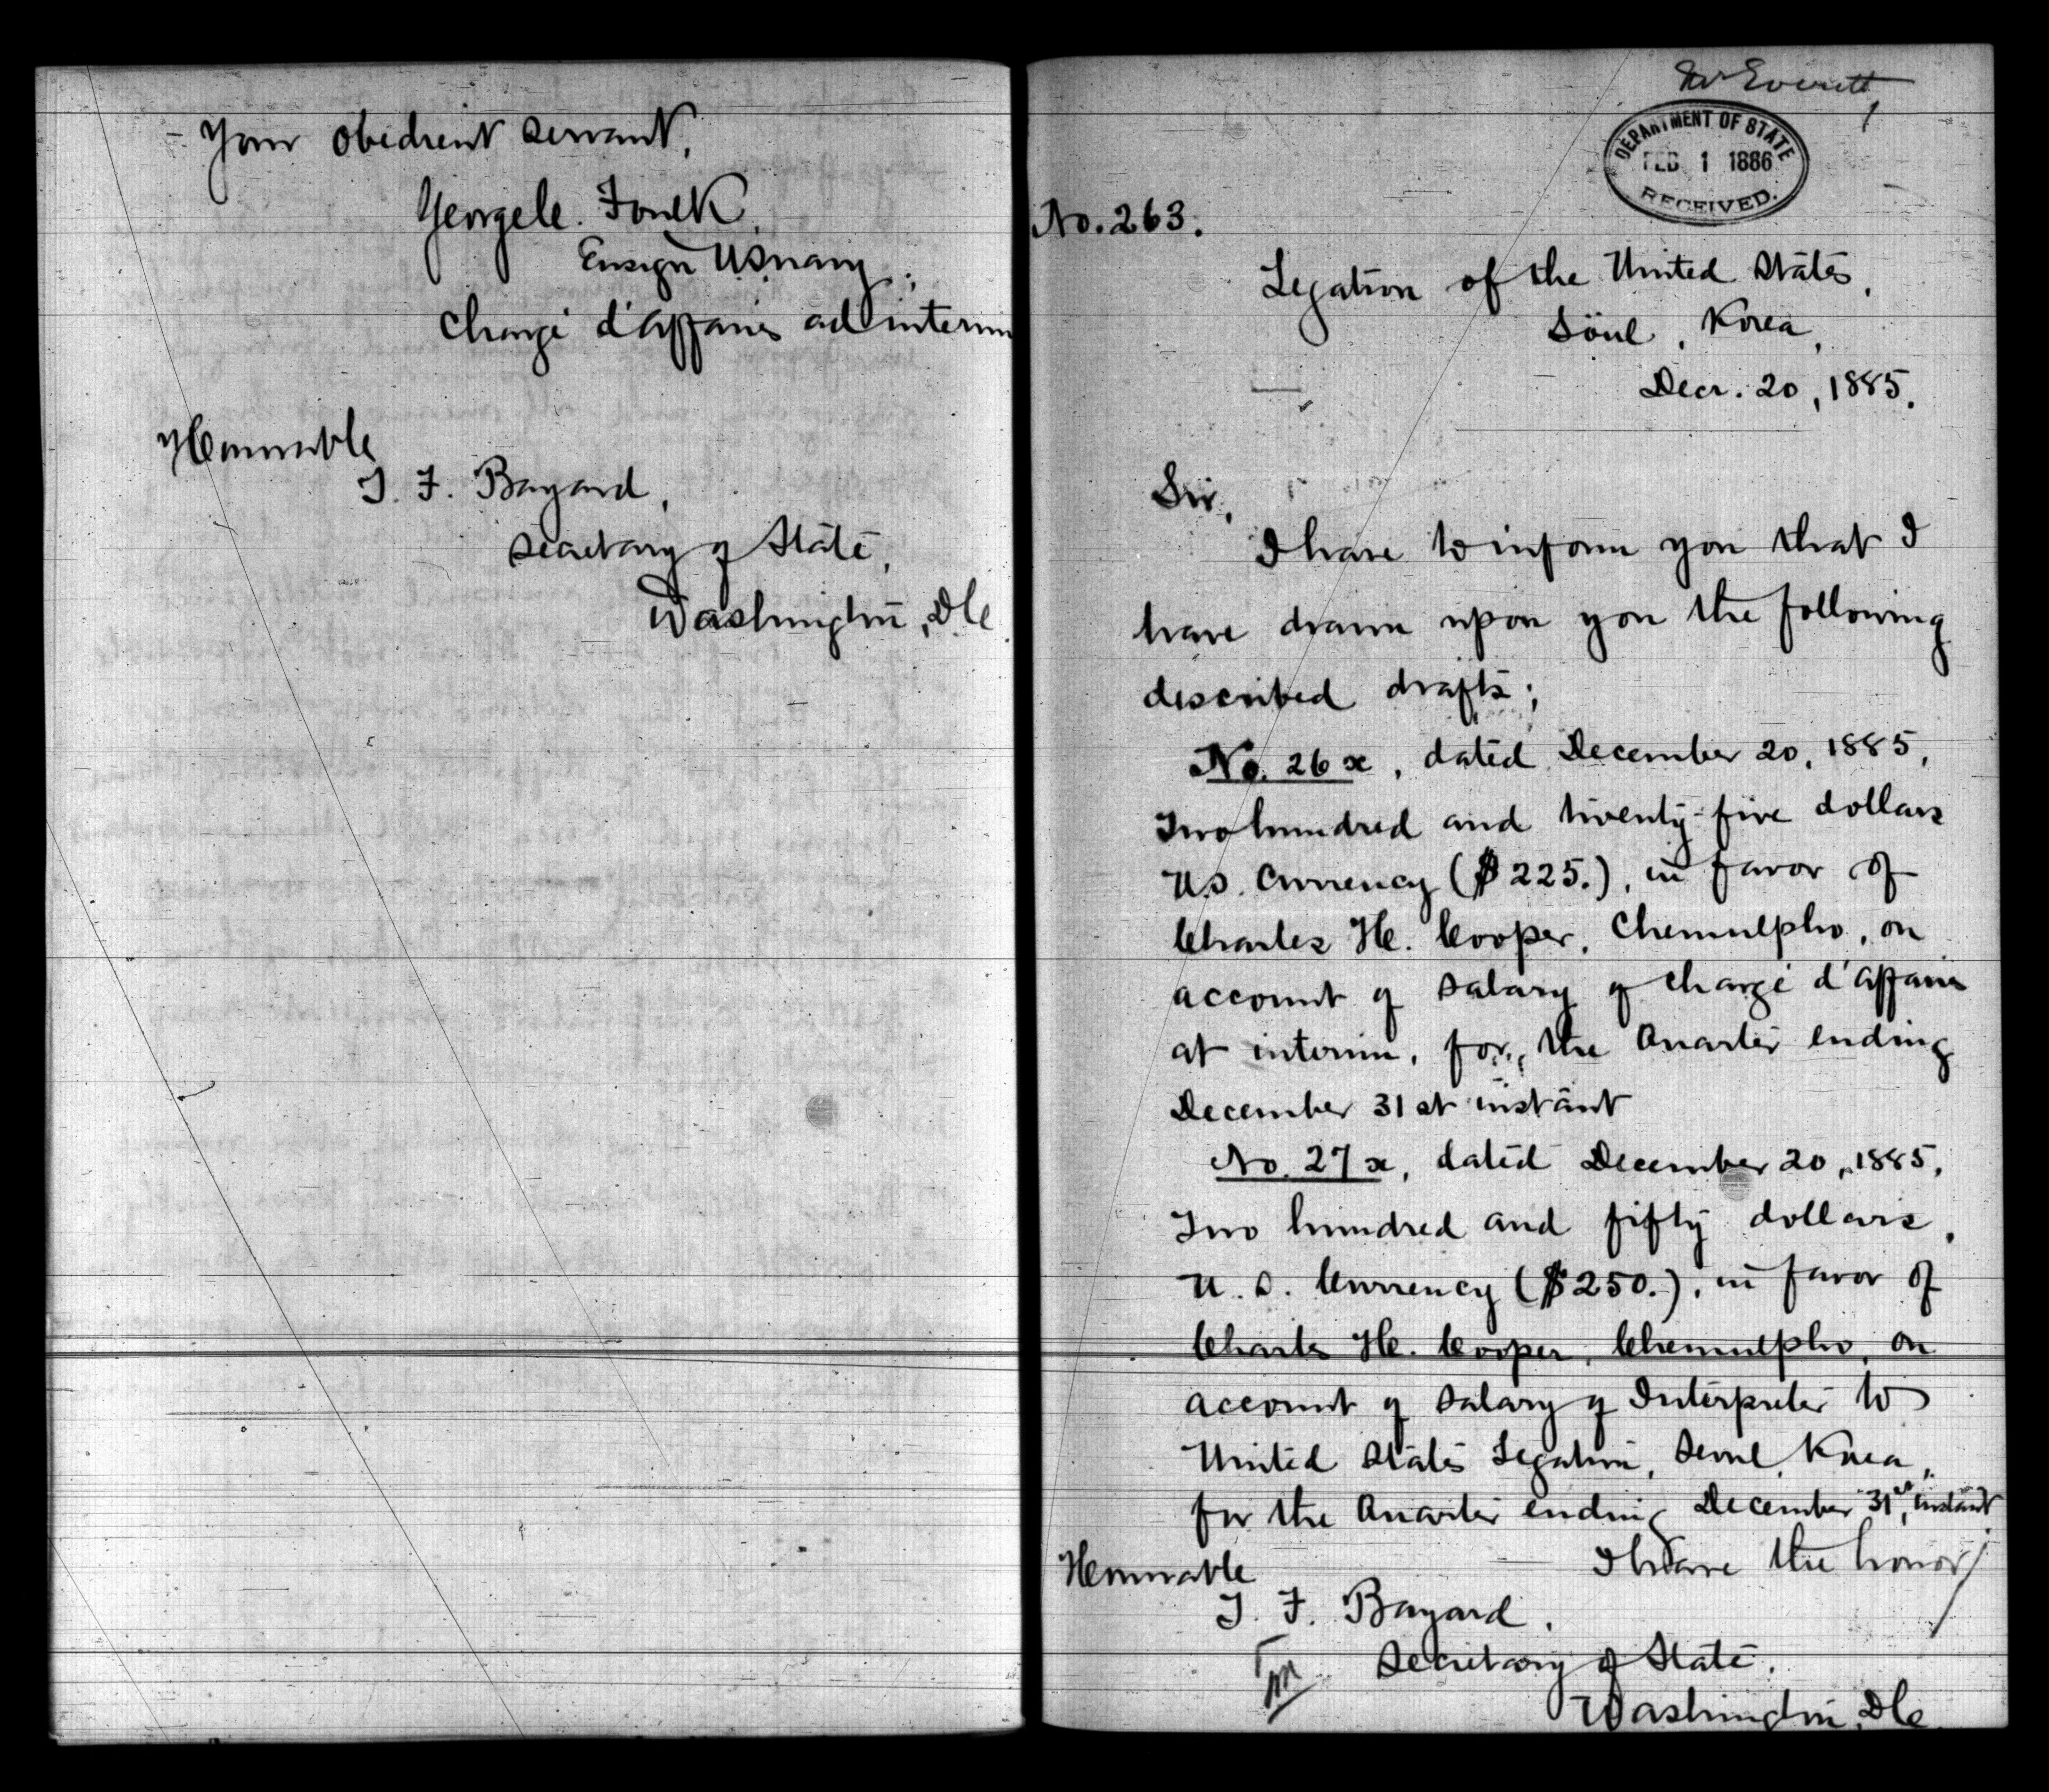 Your obedient servant,
George C. Foulk
Ensign US Navy,
Chargé d'affaires ad interim
Honorable
T. F. Bayard,
Secretary of State,
Washington, DC
Mr Everett
DEPARTMENT OF STATE
FEB 1 1886
RECEIVED.
No. 263.
Legation of the United States,
Söul, Korea,
Decr. 20, 1885.
Sir,
I have to inform you that I
have drawn upon you the following
described drafts;
No. 26x, dated December 20, 1885,
Two hundred and twenty-five dollars
U.S. Currency ($225.), in favor of
Charles H. Cooper, Chemulpho, on
account of salary of Chargé d'affaires
at interim, for, the Quarter ending
December 31st instant
No. 27x, dated December 20, 1885,
Two hundred and fifty dollars,
U.S. Currency ($250.), in favor of
Charles H. Cooper, Chemulpho, on
account of salary of Interpreter to
United States Legation, Seoul, Korea,
for the Quarter ending December 31st, instant
I have the honor/
Honorable
T. F. Bayard,
Secretary of State,
Washington, DC